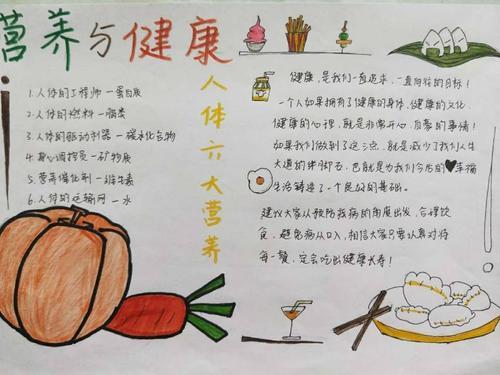 营养与健康
人体六大营养
1.人体的工程师—蛋白质
2.人体的燃料—脂类
3.人体的驱动利器—碳水化合物
4.身心调控员—矿物质
5.营养催化剂—维生素
6.人体的运输网—水
健康,是我们一直追求、一直向往的目标!
一个人如果拥有了健康的身体、健康的文化、
健康的心理,就是非常开心、启蒙的事情!
如果我们做到了这三点,就是减少了我们人生
大道的绊脚石,也就是为我们今后的幸福
生活铸造了一个良好的基础。
建议大家从预防疾病的角度出发,合理饮
食,避免病从口入,相信大家只要认真对待
每一餐,定会吃出健康长寿!